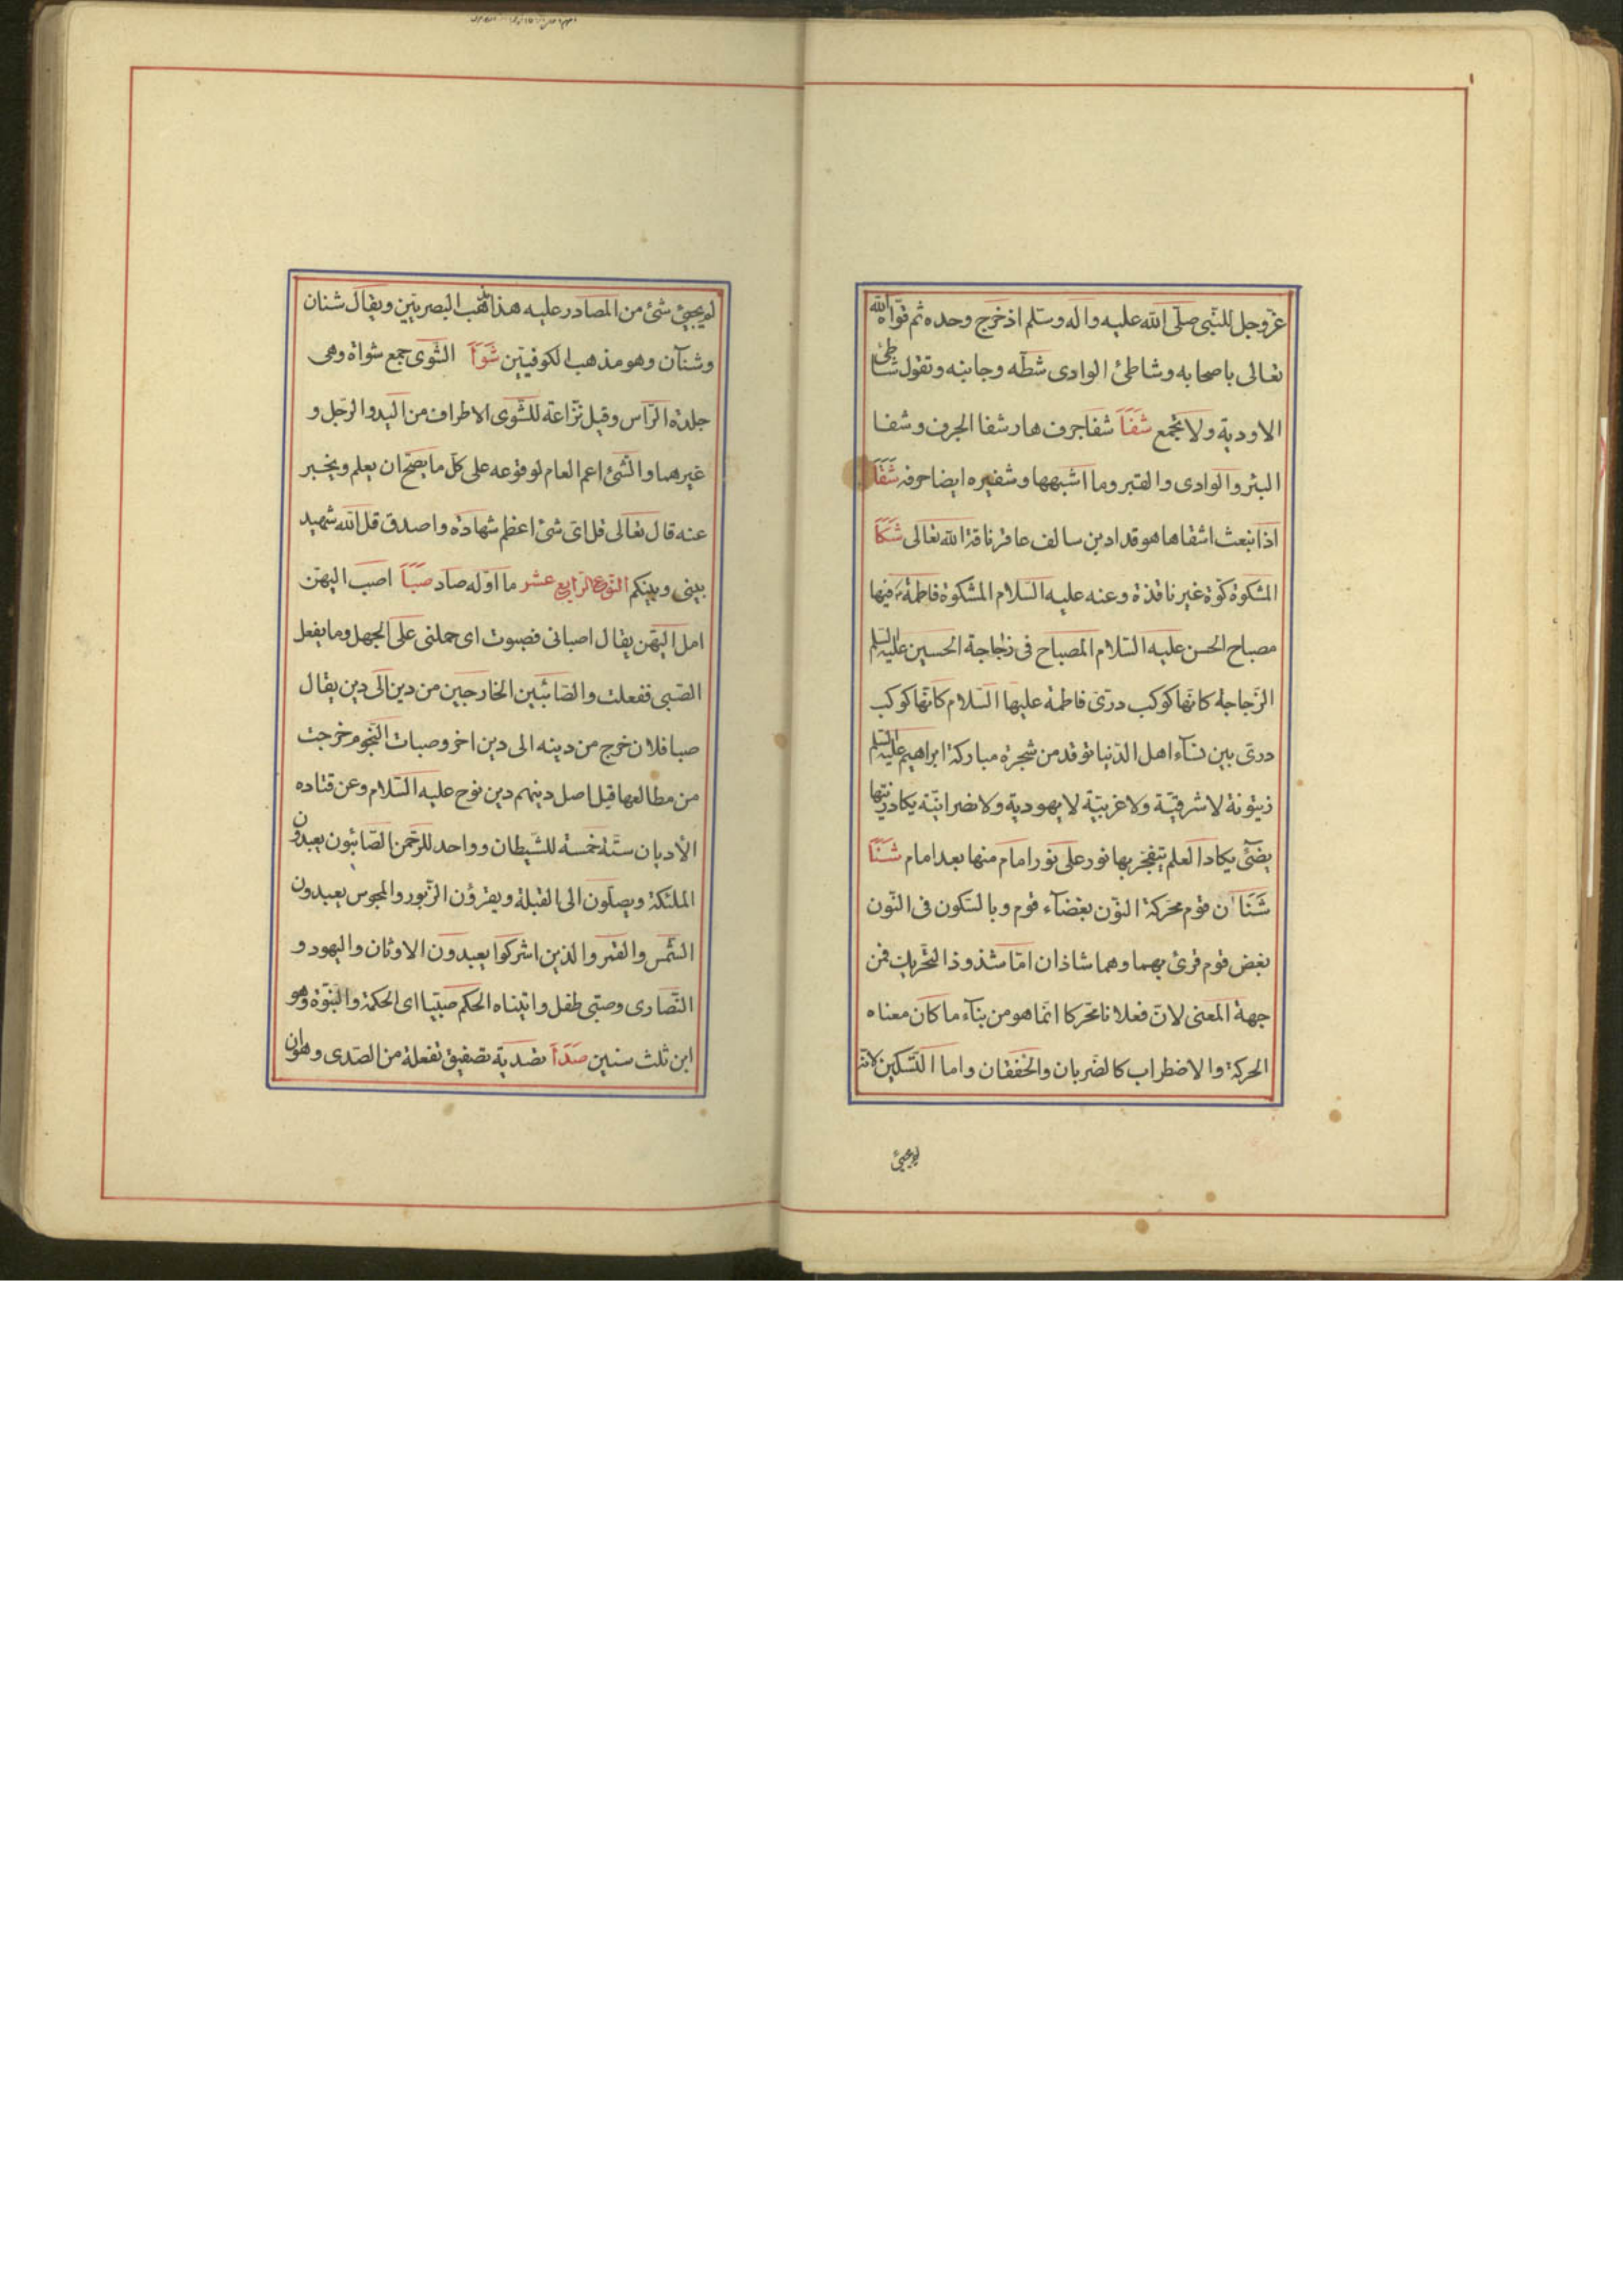 عزوجل للنبى صلى الله عليه واله وسلم اذ خرج وحده ثم قواه الله
تعالى باصحابه وشاطئ الوادى شطه وجانبه وتقول شاطئ
الاودية ولا تجمع شَفَاَ شفا جرف هار شفا الجرف وشفا
البئر والوادى والقبر وما اشبهها وشفيره ايضا حرفه شَقَاَ
اذ انبعث اشقاها هو قدار بن سالف عاقر ناقة الله تعالى شَكَاَ
المشكوة كوة غير نافذة وعنه عليه السلام المشكوة فاطمة فيها
مصباح الحسن عليه السلام المصباح فى زجاجة الحسين عليه السلم
الزجاجة كانها كوكب درى فاطمة عليها السلام كانها كوكب
درى بين نسآء اهل الدنيا توقد من شجرة مباركة ابراهيم عليه السلم
زيتونة لا شرقية ولا غربية لا يهودية ولا نصرانية يكاد زيتها
يضئ يكاد العلم يتفجر بها نور على نور امام منها بعد امام شَنَاَ
شَنَاٰن قوم محركة النون بغضآء قوم وبالسكون فى النون
بغض قوم قرئ بهما وهما شاذان اما شذوذ التحريك فمن
جهة المعنى لان فعلانا محركا انما هو من بنآء ما كان معناه
الحركة والاضطراب كالضربان والخفقان واما التسكين لانه
لم يجئ
لم يجئ شئ من المصادر عليه هذا مذهب البصريين ويقال شنان
وشنآن وهو مذهب الكوفيين شَوَاَ الشوى جمع شواة وهى
جلدة الراس وقيل نزاعة للشوى الاطراف من اليد والرجل و
غيرهما والشئ اعم العام لوقوعه على كل ما يصح ان يعلم ويخبر
عنه قال تعالى قل اى شئ اعظم شهادة واصدق قل الله شهيد
بينى وبينكم النوع الرابع عشر ما اوله صاد صَبَاَ اصب اليهن
امل اليهن يقال اصبانى فصبوت اى حملنى على الجهل وما يفعل
الصبى ففعلت والصابئين الخارجين من دين الى دين يقال
صبا فلان خرج من دينه الى دين اخر وصبات النجوم خرجت
من مطالعها قيل اصل دينهم دين نوح عليه السلام وعن قتاده
الأديان ستة خمسة للشيطان وواحد للرحمن الصابئون يعبدون
الملئكة ويصلون الى القبلة ويقرؤن الزبور والمجوس يعبدون
الشمس والقمر والذين اشركوا يعبدون الاوثان واليهود و
النصارى وصبى طفل واتيناه الحكم صبيا اى الحكمة والنبوة وهو
ابن ثلث سنين صَدَاَ تصدية تصفيق تفعلة من الصدى وهو ان